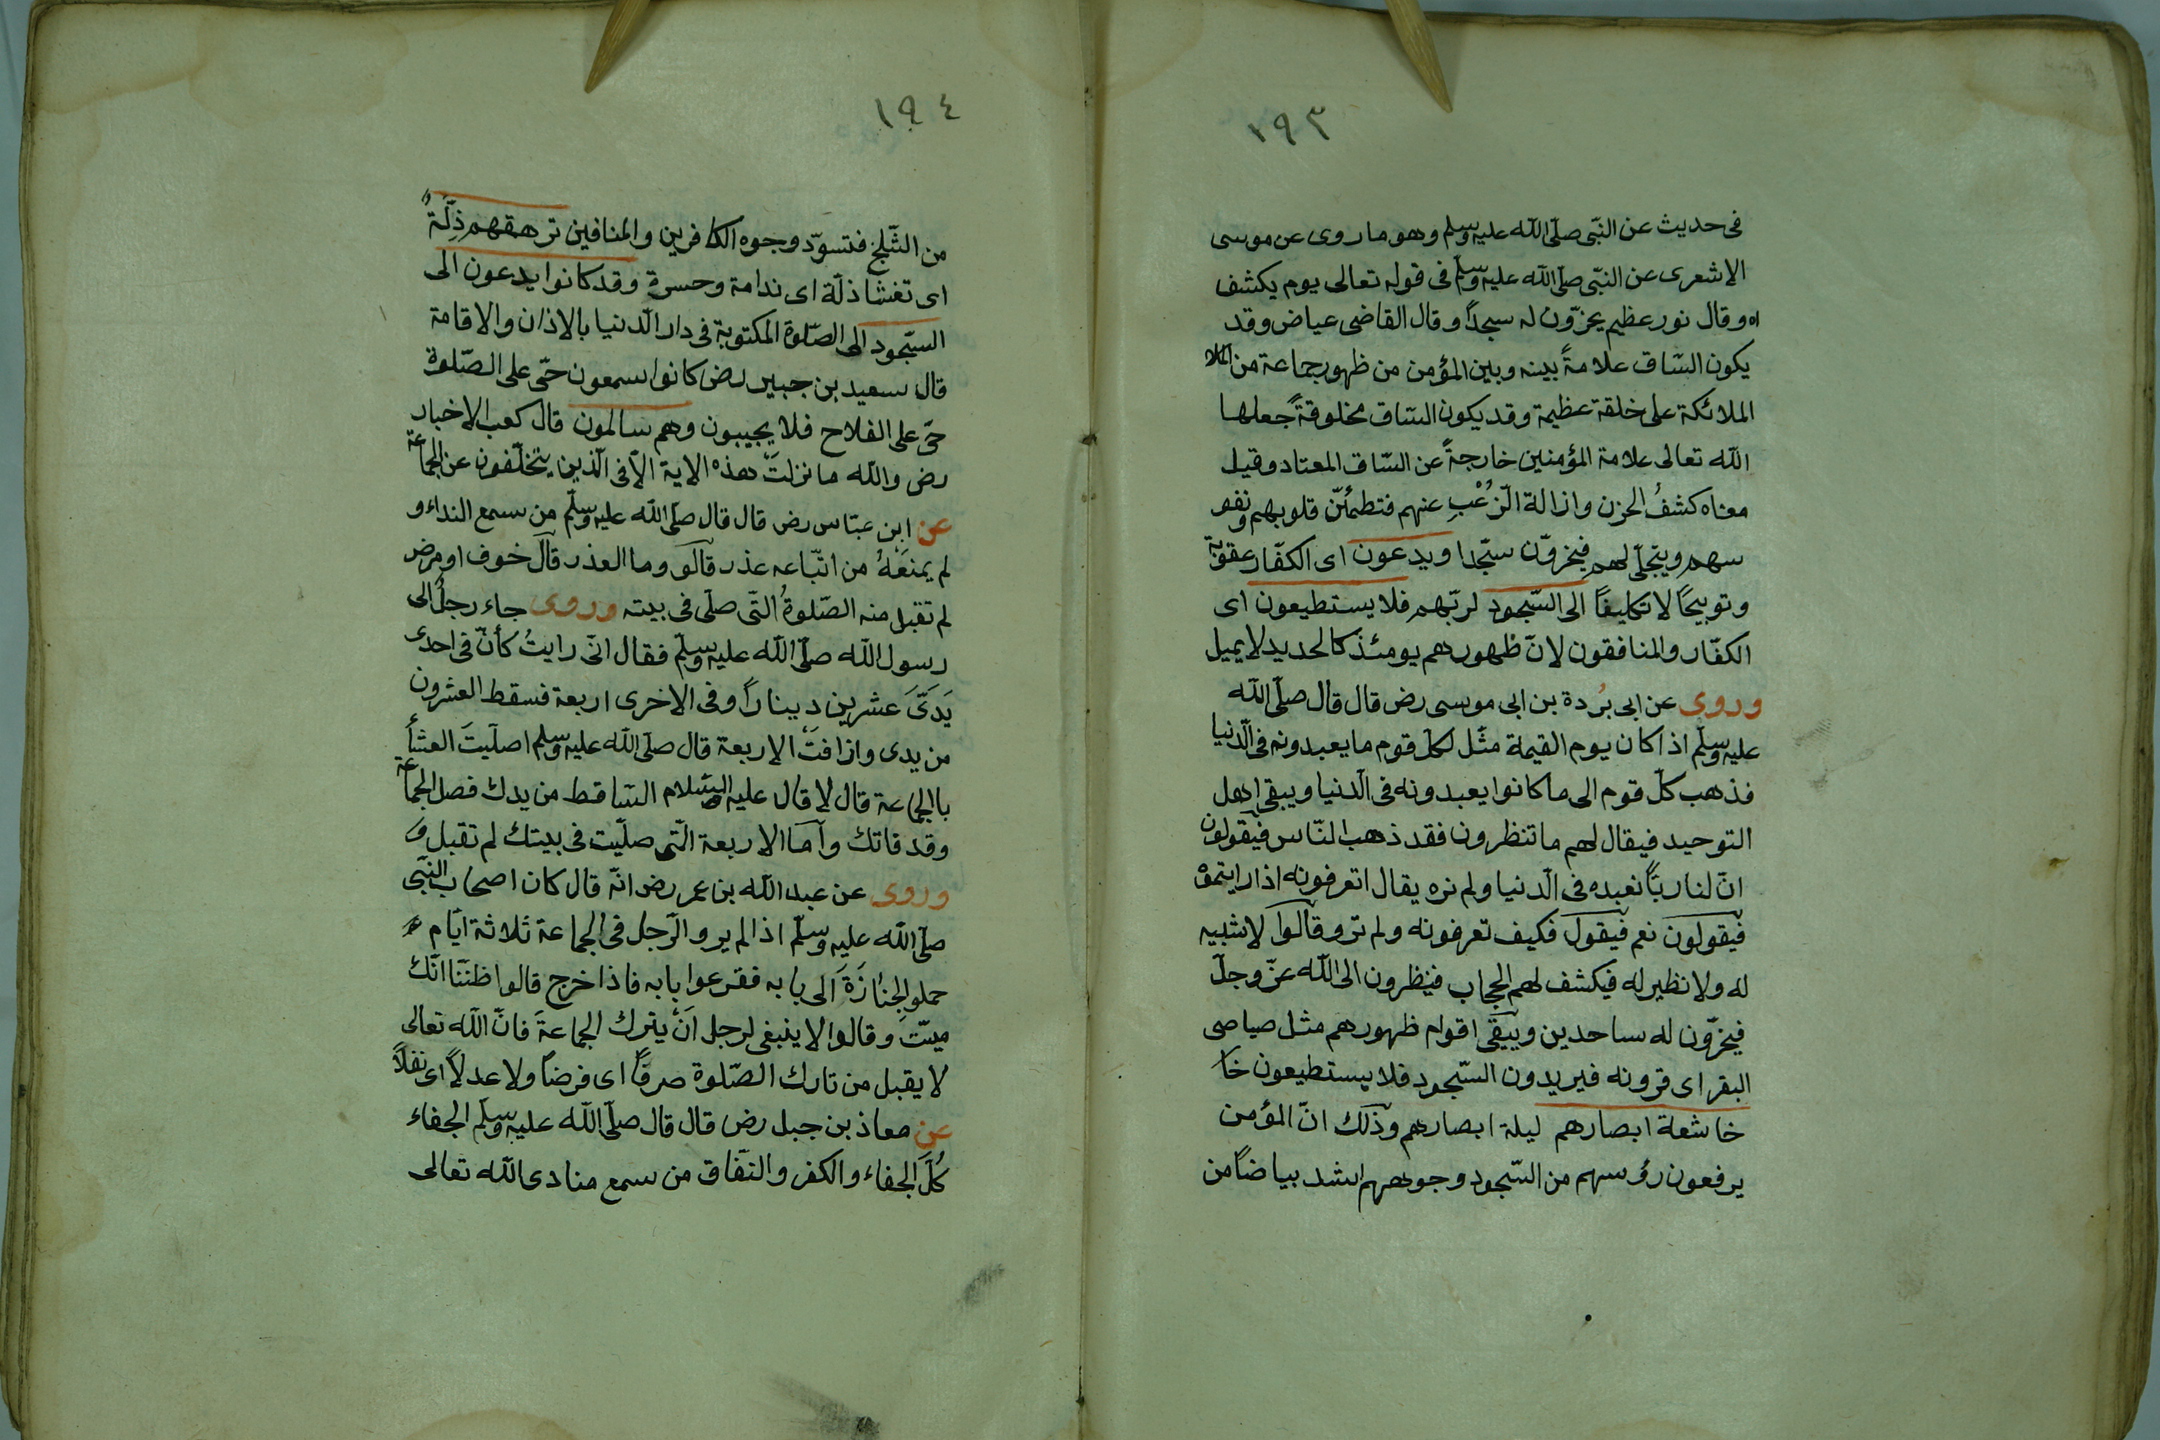 ١٩٣
فى حديث عن النبّى صلّى الله عليه وسلم وهو ما روى عن موسى
الاشعرى عن النبّى صلّى الله عليه وسلّم فى قوله تعالى يوم يكشف
اه وقال نور عظيم يخرّون له سجداً وقال القاضى عياض وقد
يكون السّاق علامةً بينه وبين المؤمن من ظهور جماعة من
الملائكة على خلقة عظيمة وقد يكون السّاق مخلوقةً جعلها
الله تعالى علامة المؤمنين خارجةً عن السّاق المعتاد وقيل
معناه كشفُ الحزن وازالة الرّعْبِ عنهم فتطمئنّ قلوبهم ونفو
سهم ويتجلّى لهم فيخرّون سجّدا ويدعون اى الكفّار عقوبة
وتوبيخًا لا تكليفًا الى السّجود لربّهم فلا يستطيعون اى
الكفّار والمنافقون لانّ ظهورهم يومئذ كالحديد لا يميل
وروى عن ابى بُردة بن ابى موسى رض قال قال صلّى الله
عليه وسلّم اذا كان يوم القيمة مثّل لكلّ قوم ما يعبدونه فى الدّنيا
فذهب كلّ قوم الى ما كانوا يعبدونه فى الدّنيا ويبقى اهل
التوحيد فيقال لهم ما تنظرون فقد ذهب النّاس فيقولون
انّ لنا ربًّا نعبده فى الدّنيا ولم نره يقال اتعرفونه اذا رايتموه
فيقولون نعم فيقول فكيف تعرفونه ولم تروه قالوا لا شبيه
له ولا نظير له فيكشف لهم الحجاب فينظرون الى الله عزّ وجلّ
فيخرّون له ساجدين ويبقى اقوام ظهورهم مثل صياصى
البقر اى قرونه فيريدون السّجود فلا يستطيعون خا
خاشعة ابصارهم ليلة ابصارهم وذلك انّ المؤمن
يرفعون رؤسهم من السّجود وجوههم اشد بياضًا من
١٩٤
من الثّلج فتسوّد وجوه الكافرين والمنافين ترهقهم ذِلّةٌ
اى تغشا ذلّة اى ندامة وحسرة وقد كانوا يدعون الى
السّجود الى الصّلوة المكتوبة فى دار الدّنيا بالاذان والاقامة
قال سعيد بن جبير رض كانوا سمعون حىّ على الصّلوة
حىّ على الفلاح فلا يجيبون وهم سالمون قال كعب الاخبار
رض والله ما نزلتْ هذه الاية الاّ فى الّذين يتخلّفون عن الجماعة
عن ابن عبّاس رض قال قال صلّى الله عليه وسلّم من سمع النداء و
لم يمنعْهُ من اتّباعه عذر قالو وما العذر قال خوف او مرض
لم تقبل منه الصّلوةُ التّى صلّى فى بيته وروى جاء رجلٌ الى
رسول الله صلّى الله عليه وسلّم فقال انّى رايتُ كأنّ فى احدى
يَدَىَّ عشرين ديناراً وفى الاخرى اربعة فسقط العشرون
من يدى وازافت الاربعة قال صلّى الله عليه وسلم اصلّيتَ العشأ
باالجماعة قال لا قال عليه السّلام السّاقط من يدك فصل الجماعة
وقد فاتك وامّا الاربعة الّتى صلّيت فى بيتك لم تقبل
وروى عن عبد الله بن عمر رض انّه قال كان اصحاب النّبّى
صلّى الله عليه وسلّم اذا لم يروا الرّجل فى الجماعة ثلاثة ايّام
حملو الجِنَازَةَ الى بابه فقرعوا بابه فاذا خرج قالوا ظننّا انّك
ميّتٌ وقالوا لا ينبغى لرجل اَنْ يترك الجماعةَ فانّ الله تعالى
لا يقبل من تارك الصّلوة صرفًا اى فرضًا ولا عدلاً اى نفلاً
عن معاذ بن جبل رض قال قال صلّى الله عليه وسلّم الجفاء
كُلّ الجفاء والكفر والنّفاق من سمع منادى الله تعالى